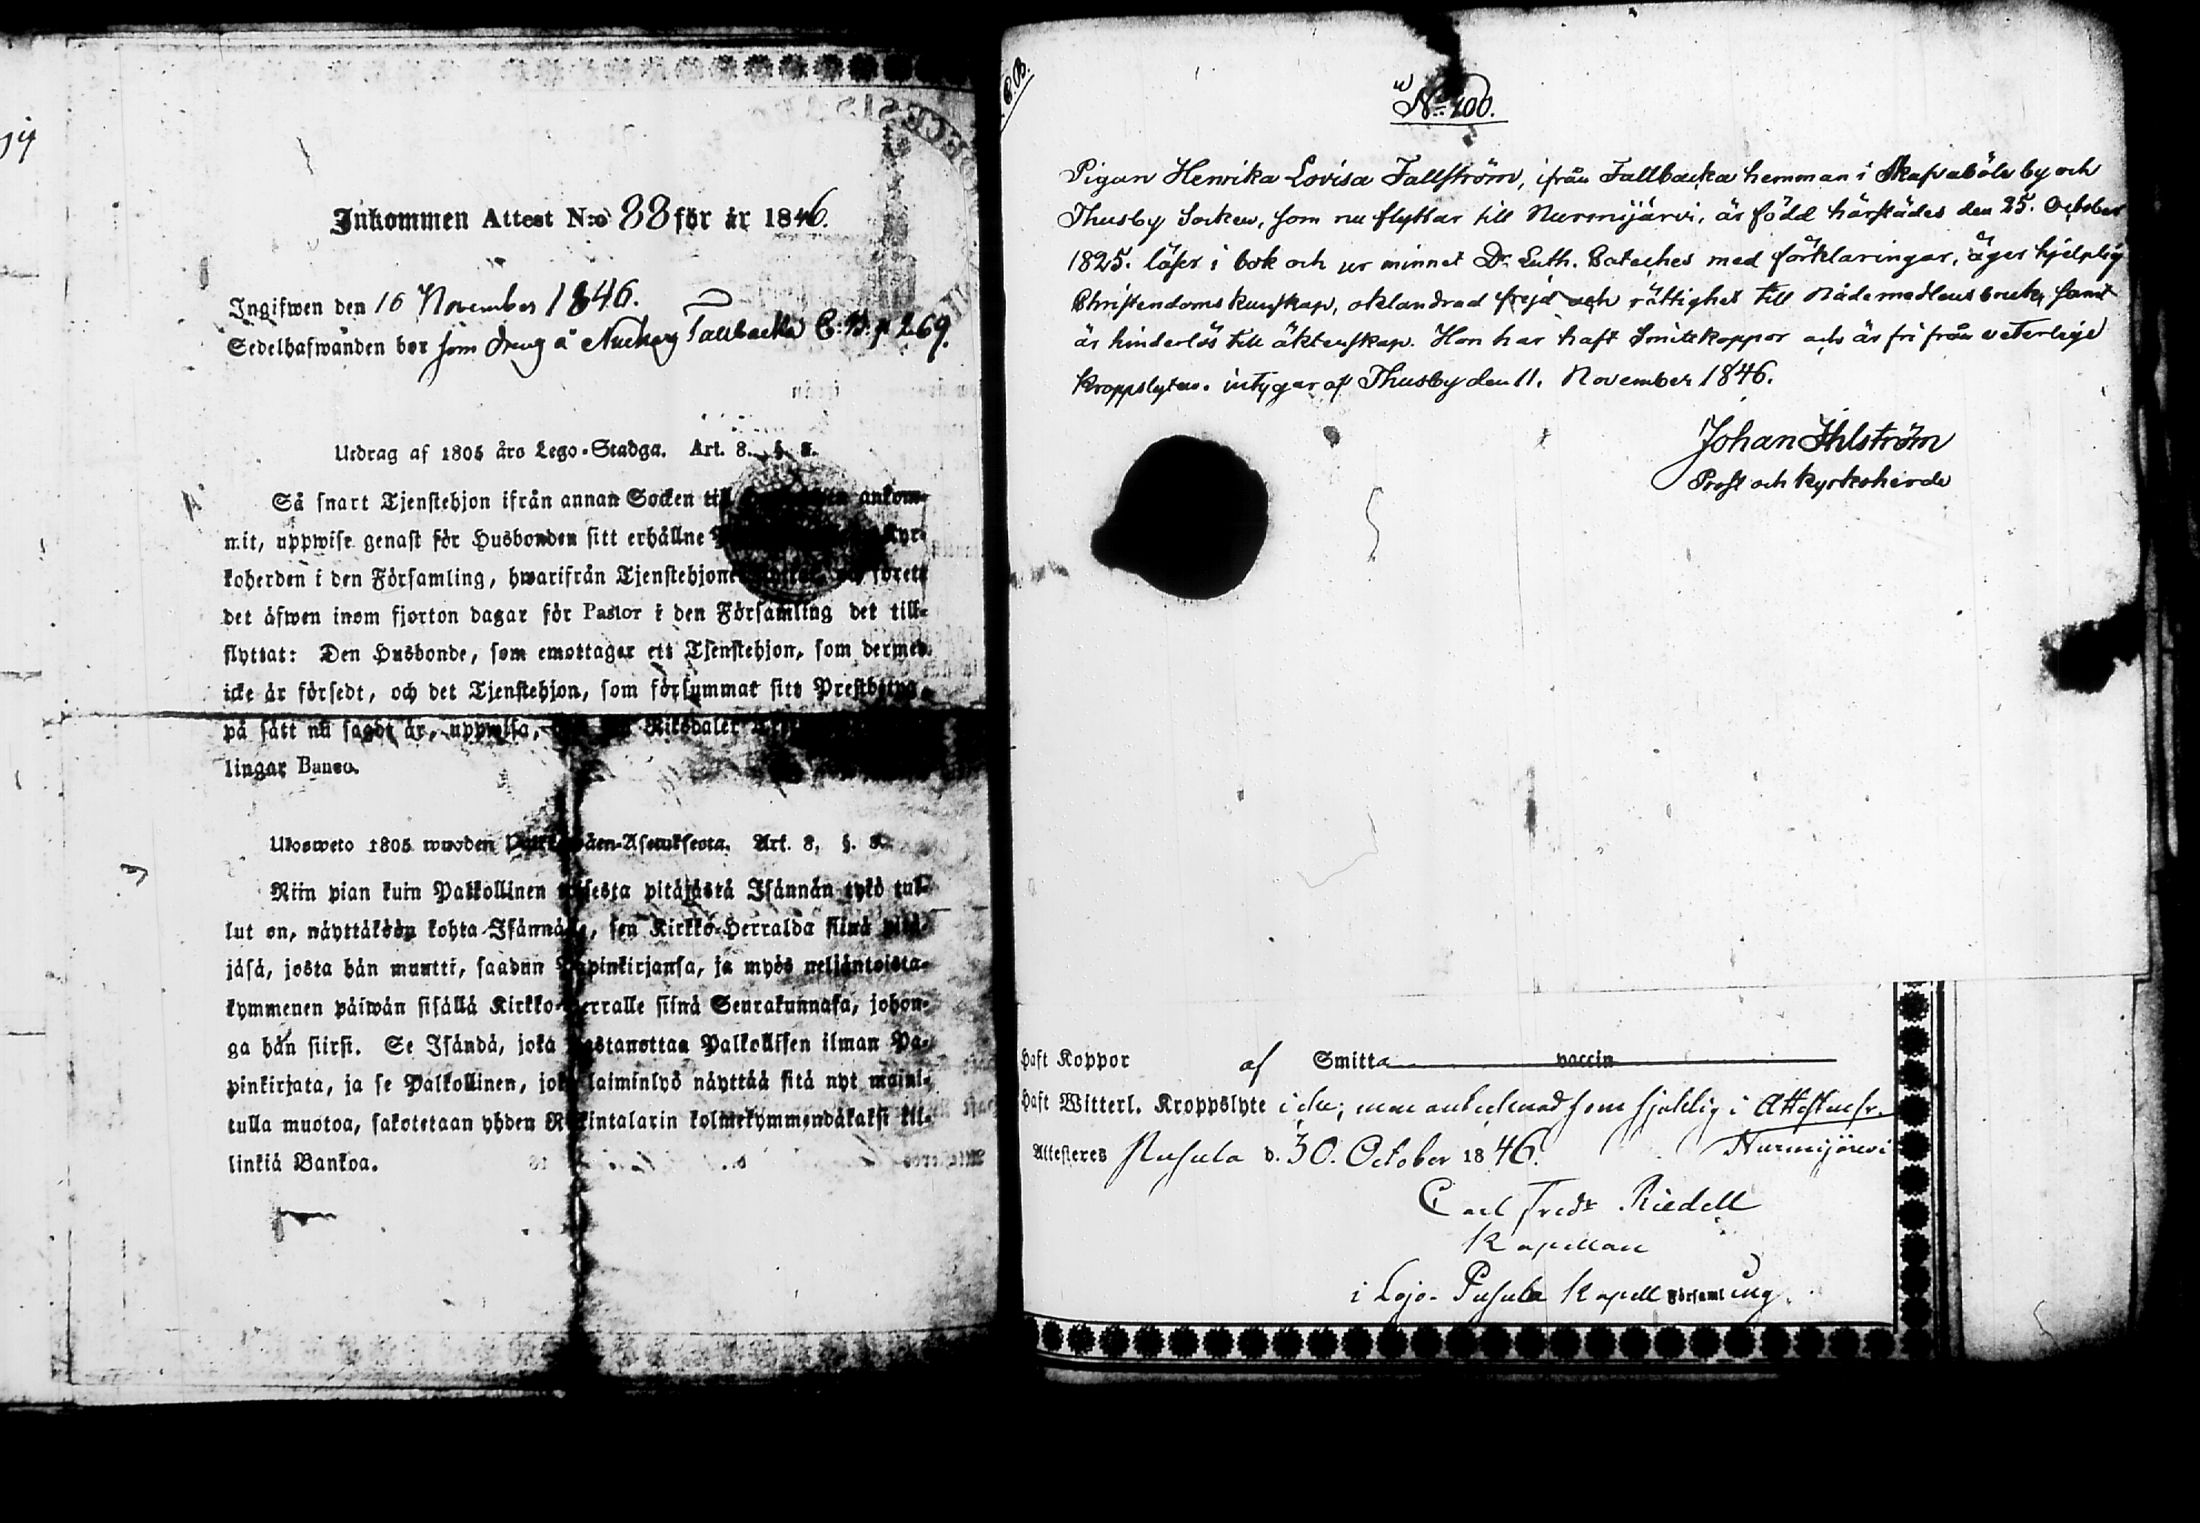 Inkommen Attest N:o 88 för år 1846.
Ingifwen den 16 November 1846.
Sedelhafwanden bor som dreng å Tallbacka C.B. p 269.
Utdrag af 1805 års Lego-Stadga. Art. 8. §.
Så snart Tjenstehjon ifrån annan Socken till ankom-
mit, uppwise genast för Husbonden sitt erhållne Kyr-
koherden i den Församling, hwarifrån Tjenstehjonet
det äfwen inom fjorton dagar för Pastor i den Församling det till-
flyttat: Den Husbonde, som emottager ett Tjenstehjon, som dermed
icke är försedt, och det Tjenstehjon, som försummat sitt
på sätt nu sagdt är, uppwisa, Riksdaler
lingar Banco.
Ulosweto 1805 wuoden Art. 8. §.
Niin pian kuin Palkollinen pitäjästä Isännän tykö tul-
lut on, näyttäköön kohta Isännälle, sen Kirkko-Herralda siinä pitä-
jäsä, josta hän muutti, saadun Papinkirjansa, ja myös neljäntoista-
kymmenen päiwän sisällä Kirkko-Herralle siinä Seurakunnasa, johon-
ga hän siirsi. Se Isändä, joka wastanottaa Palkollisen ilman Pa-
pinkirjata, ja se Palkollinen, joka laiminlyö näyttää sitä nyt maini-
tulla muotoa, sakotetaan yhden Rikintalarin kolmekymmendäkaksi kil-
linkiä Bankoa.
C.B.
No 100.
Pigan Henrika Lovisa Fallström, ifrån Fallbacka hemman i Skafvaböle by och
Thusby Socken, som nu flyttar till Nurmijärvi, är född härstädes den 25. October
1825. läser i bok och ur minnet Dr. Luth. Cateches med förklaringar, äger hjelplig
Christendoms kunskap, oklandrad frejd och rättighet till Nådemedlens bruk, samt
är hinderlös till äktenskap. Hon har haft Smittkoppor och är fri från veterlige
kroppslyten. intygar af Thusby den 11. November 1846.
Johan Ihlström
Prost och kyrkoherde
Haft Koppor af Smitta vaccin
Haft Witterl. Kroppslyte icke; men antecknad som sjuklig i Attesten fr.
Attesteres Pusula d. 30. October 1846. Nurmijärvi
Carl Fredr Riedell
Kapellan
i Lojo- Pusula Kapell Församling.